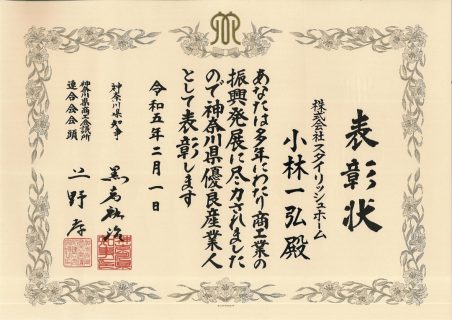 表彰状
株式会社スタイリッシュホーム
小林一弘殿
あなたは多年にわたり商工業の
振興発展に尽力されました
ので神奈川県優良産業人
として表彰します
令和五年二月一日
神奈川県知事
黒岩祐治
神奈川県商工会議所
連合会会頭
上野孝